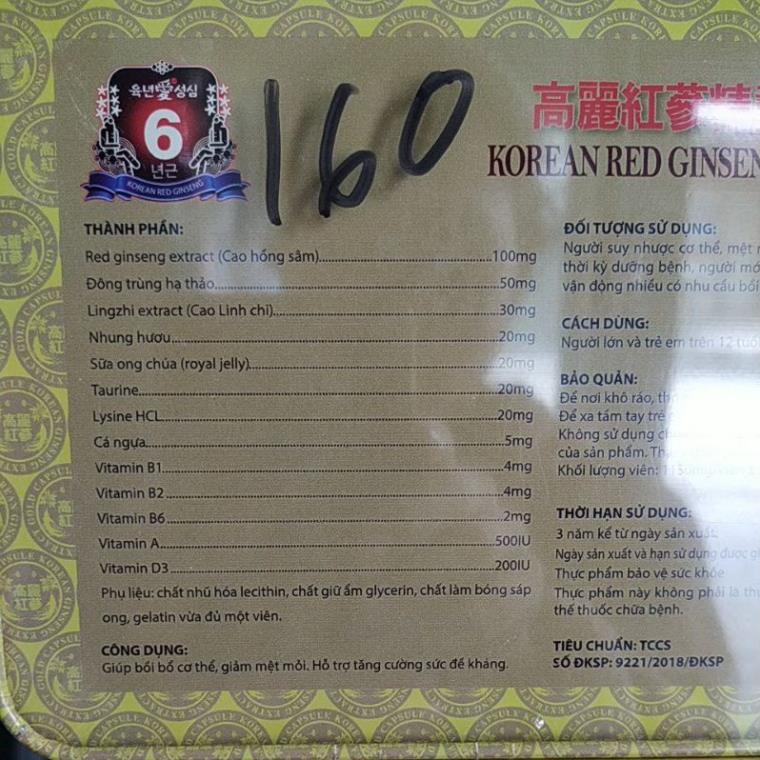 육년愛성심
6
년근
KOREAN RED GINSENG
160
高麗紅蔘精
KOREAN RED GINSEN
THÀNH PHẦN:
Red ginseng extract (Cao hồng sâm)....100mg
Đông trùng hạ thảo....50mg
Lingzhi extract (Cao Linh chi)....30mg
Nhung hươu....20mg
Sữa ong chúa (royal jelly)....20mg
Taurine....20mg
Lysine HCL....20mg
Cá ngựa....5mg
Vitamin B1....4mg
Vitamin B2....4mg
Vitamin B6....2mg
Vitamin A....500IU
Vitamin D3....200IU
Phụ liệu: chất nhũ hóa lecithin, chất giữ ẩm glycerin, chất làm bóng sáp
ong, gelatin vừa đủ một viên.
CÔNG DỤNG:
Giúp bồi bổ cơ thể, giảm mệt mỏi. Hỗ trợ tăng cường sức đề kháng.
ĐỐI TƯỢNG SỬ DỤNG:
Người suy nhược cơ thể, mệt
thời kỳ dưỡng bệnh, người mớ
vận động nhiều có nhu cầu bồi
CÁCH DÙNG:
Người lớn và trẻ em trên 12 tuổi
BẢO QUẢN:
Để nơi khô ráo,
Để xa tầm tay trẻ
Không sử dụng
của sản phẩm.
Khối lượng viên:
THỜI HẠN SỬ DỤNG:
3 năm kể từ ngày sản xuất
Ngày sản xuất và hạn sử dụng được
Thực phẩm bảo vệ sức khỏe
Thực phẩm này không phải là
thế thuốc chữa bệnh.
TIÊU CHUẨN: TCCS
SỐ ĐKSP: 9221/2018/ĐKSP